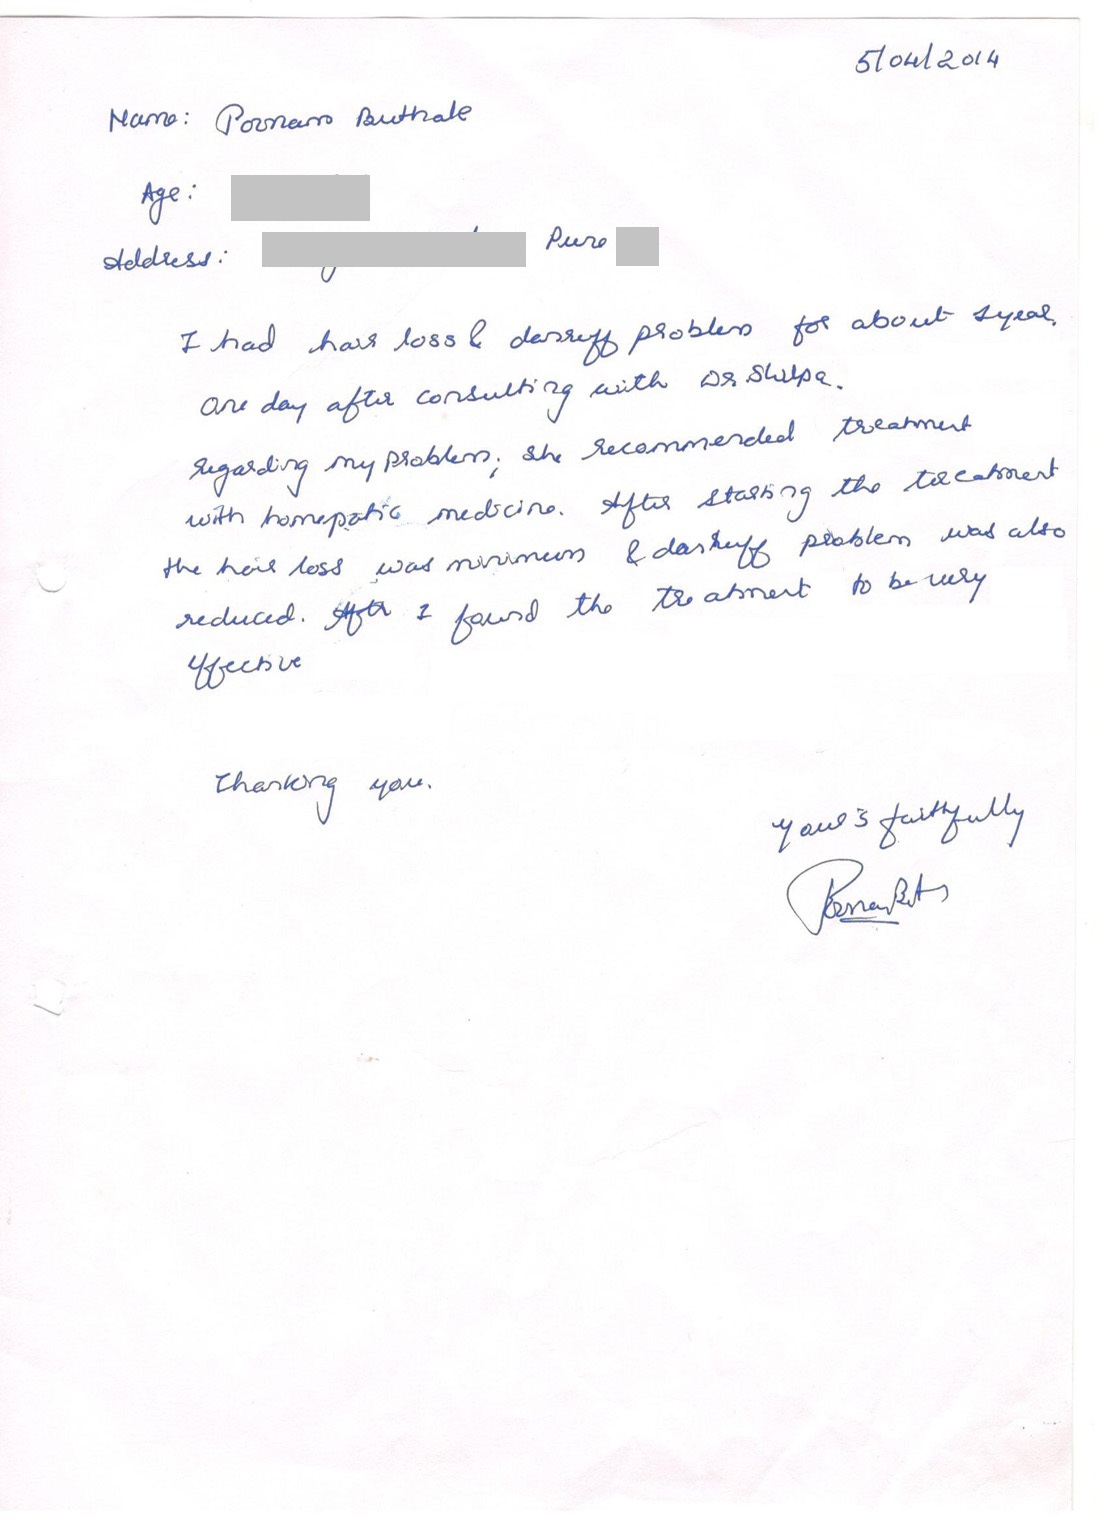 5/04/2014
Name: Poonam Buthale
Age:
Address: Pune
I had hair loss & dandruff problem for about 1 year.
One day after consulting with Dr Shilpa.
regarding my problem; she recommended treatment
with homepatic medicine. After starting the treatment
the hair loss was minimum & dandruff problem was also
reduced. I found the treatment to be very
effective
Thanking you.
Your's faithfully